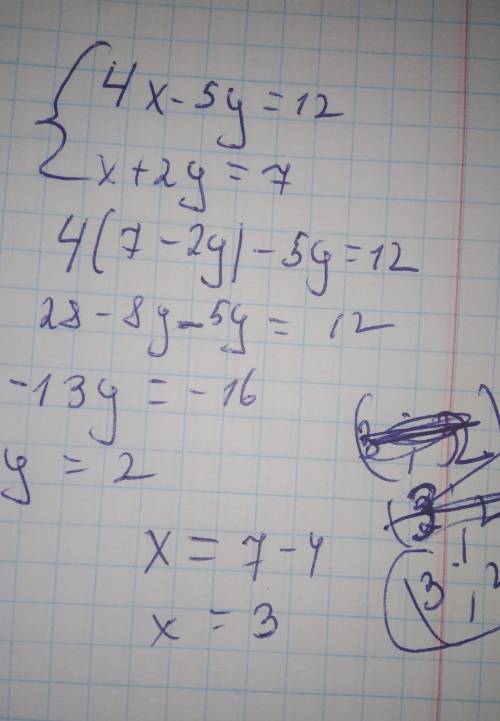 4x - 5y = 12
x + 2y = 7
4(7 - 2y) - 5y = 12
28 - 8y - 5y = 12
-13y = -16
y = 2
x = 7 - 4
x = 3
(3 1 2